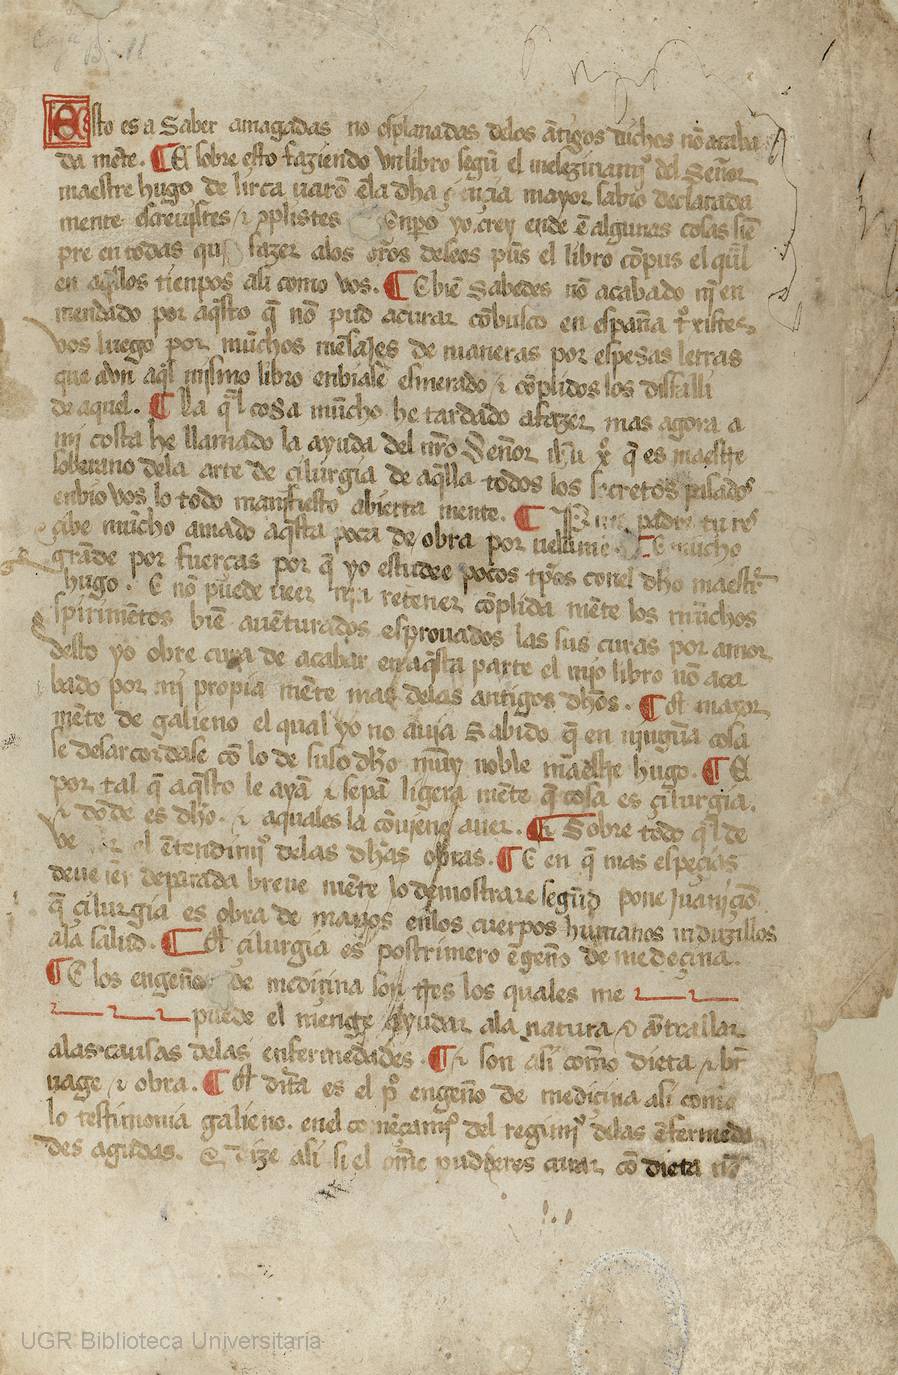 Caja B-11
Esto es a Saber amagadas no esplanadas delos ātigos dichos nō acaba
da mēte. ¶ E sobre esto faziendo un libro segū el melezinamj̄º del Señor
maestre hugo de lucca uarō ēla dha çiençia mayor sabio declarada
mente escreujstes ⁊ cōplistes Enpō yo crey ende ē algunas cosas siē
pre en todas quis fazer alos ur̄os deseos pus el libro cōpus el qūl
en aq̄llos tienpos asi como vos. ¶ E biē Sabedes nō acabado nj̄ en
mendado por aq̄sto q̄ nō pud acurar cō busco en españa
vos luego por mūchos mēsajes de maneras por espesas letras
que avn aq̄l mjsmo libro enbiase esmerado ⁊ cōplidos los disfalli
de aquel. ¶ lla q̄l cosa mūcho he tardado afazer mas agora a
mi costa he llamado la ayuda del nr̄o Señor ih̄u x̄º q̄ es maestre
soberano dela arte de çilurgia de aq̄lla todos los secretos pasados
enbio vos lo todo manifiesto abierta mente. ¶ padre tu re
çibe mūcho amado aq̄sta poca de obra por uellume ¶ E mucho
grāde por fuerças por q̄ yo estudee pocos tp̄os conel dh̄o maestre
hugo. E nō puede ueer nj̄ retener cōplida mēte los mūchos
spirimētos biē auēturados esprouados las sus curas por amor
desto yo obre cura de acabar en aq̄sta parte el mjo libro nō aca
bado por mi propia mēte mas delas antigos dhōs. ¶ Et mayor
mēte de galieno el qual yo no auja Sabido q̄ en njngūa cosa
se desarcordase cō lo de suso dh̄o mūy noble maestre hugo. ¶ E
por tal q̄ aq̄sto le ayā ⁊ sepā ligera mēte q̄ cosa es çilurgia.
⁊ dōde es dh̄o. ⁊ aquales la cōujene auer. ¶ Sobre todo q̄l de
ve el ētendimj̄º delas dh̄as obras. ¶ E en q̄ mas espeçias
deve ser departada breve mēte lo demostrare segūd pone juaniçio
q̄ çilurgia es obra de manos enlos cuerpos humanos induzillos
ala salud. ¶ Et çilurgia es postrimero ēgeño de medeçina.
¶ E los engeños de mediçina son tres los quales me
puede el menge ayudar ala natura ⁊ cōtrallar
alas causas delas enfermedades. ¶ ⁊ son asi com̄o dieta ⁊ br̄
uage ⁊ obra. ¶ Et dita es el pº engeño de mediçina asi como
lo testimonia galieno. enel comēçamj̄º del regimj̄º delas ēfermeda
des agudas. E dize asi si el om̄e pudieres curar cō dieta nō
UGR Biblioteca Universitaria